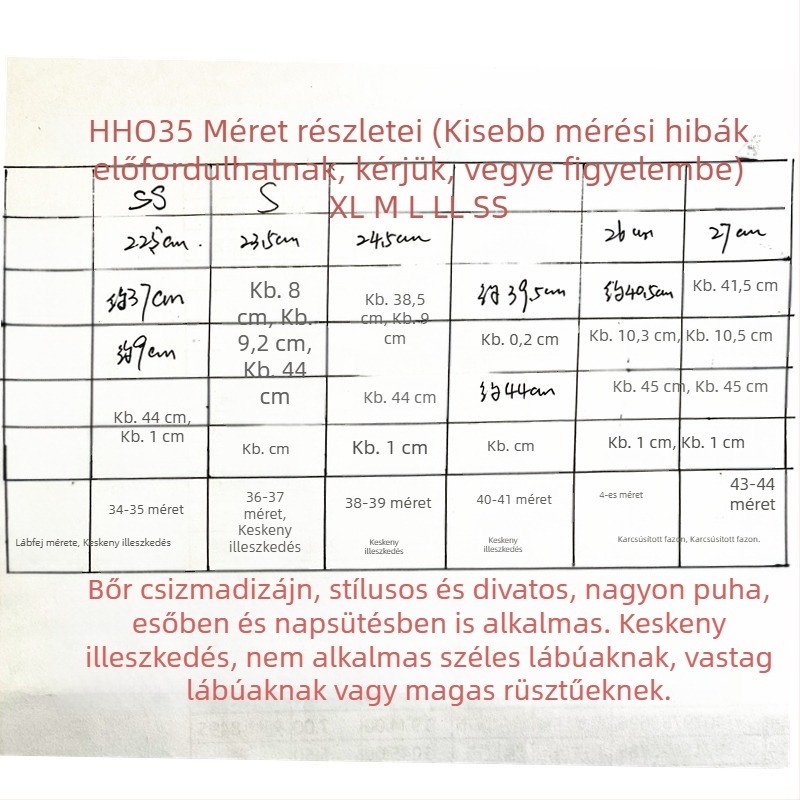 HHO35 Méret részletei (Kisebb mérési hibák
előfordulhatnak, kérjük, vegye figyelembe)
XL M L LL SS
SS S
22,5cm. 23,5cm 24,5cm 26cm 27cm
约37cm Kb. 8 cm, Kb. 9,2 cm, Kb. 44 cm Kb. 38,5 cm, Kb. 9 cm 约39,5cm 约40,5cm Kb. 41,5 cm
约9cm Kb. 0,2 cm Kb. 10,3 cm, Kb. 10,5 cm
Kb. 44 cm 约44cm Kb. 45 cm, Kb. 45 cm
Kb. 44 cm,
Kb. 1 cm Kb. cm Kb. 1 cm Kb. cm Kb. 1 cm, Kb. 1 cm
34-35 méret 36-37 méret, Keskeny illeszkedés 38-39 méret 40-41 méret 4-es méret 43-44 méret
Lábfej mérete, Keskeny illeszkedés Keskeny illeszkedés Keskeny illeszkedés Karcsúsított fazon, Karcsúsított fazon.
Bőr csizmadizájn, stílusos és divatos, nagyon puha,
esőben és napsütésben is alkalmas. Keskeny
illeszkedés, nem alkalmas széles lábúaknak, vastag
lábúaknak vagy magas rüsztűeknek.